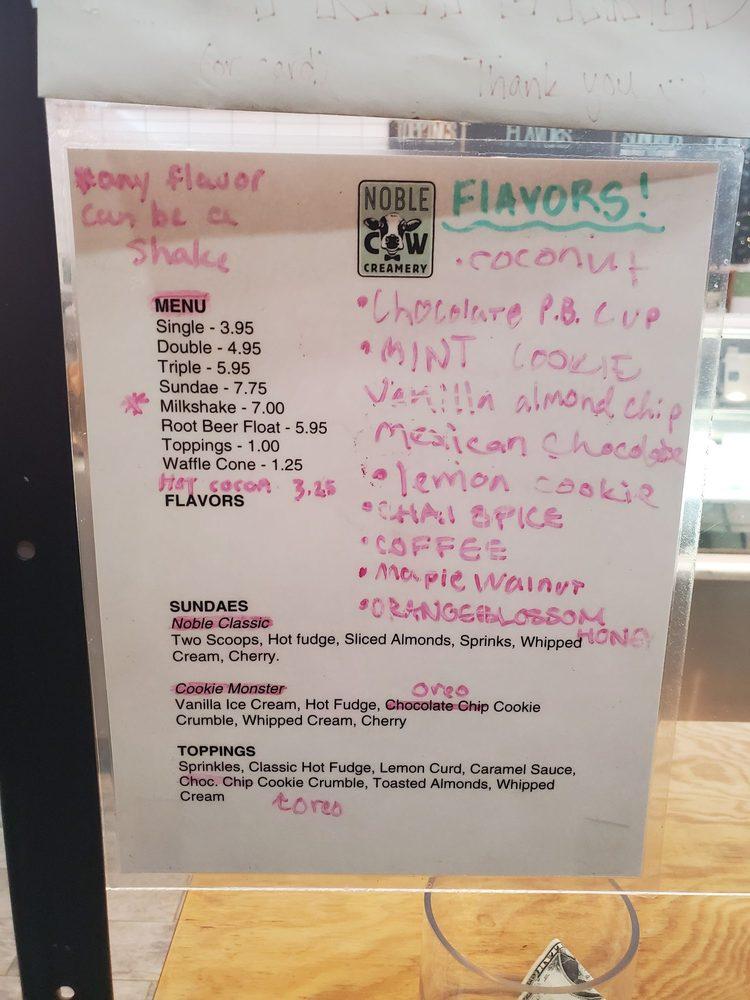 (or card)
Thank you :)
TOPPINGS FLAVORS
*any flavor
can be a
Shake
NOBLE
COW
CREAMERY
FLAVORS!
MENU
Single - 3.95
Double - 4.95
Triple - 5.95
Sundae - 7.75
* Milkshake - 7.00
Root Beer Float - 5.95
Toppings - 1.00
Waffle Cone - 1.25
Hot cocoa 3.25
FLAVORS
•coconut
•Chocolate P.B. Cup
•MINT COOKIE
Vanilla almond chip
Mexican Chocolate
•lemon cookie
•CHAI SPICE
•COFFEE
•Maple Walnut
•ORANGEBLOSSOM
HONEY
SUNDAES
Noble Classic
Two Scoops, Hot fudge, Sliced Almonds, Sprinks, Whipped
Cream, Cherry.
Cookie Monster
Oreo
Vanilla Ice Cream, Hot Fudge, Chocolate Chip Cookie
Crumble, Whipped Cream, Cherry
TOPPINGS
Sprinkles, Classic Hot Fudge, Lemon Curd, Caramel Sauce,
Choc. Chip Cookie Crumble, Toasted Almonds, Whipped
Cream
↑Oreo